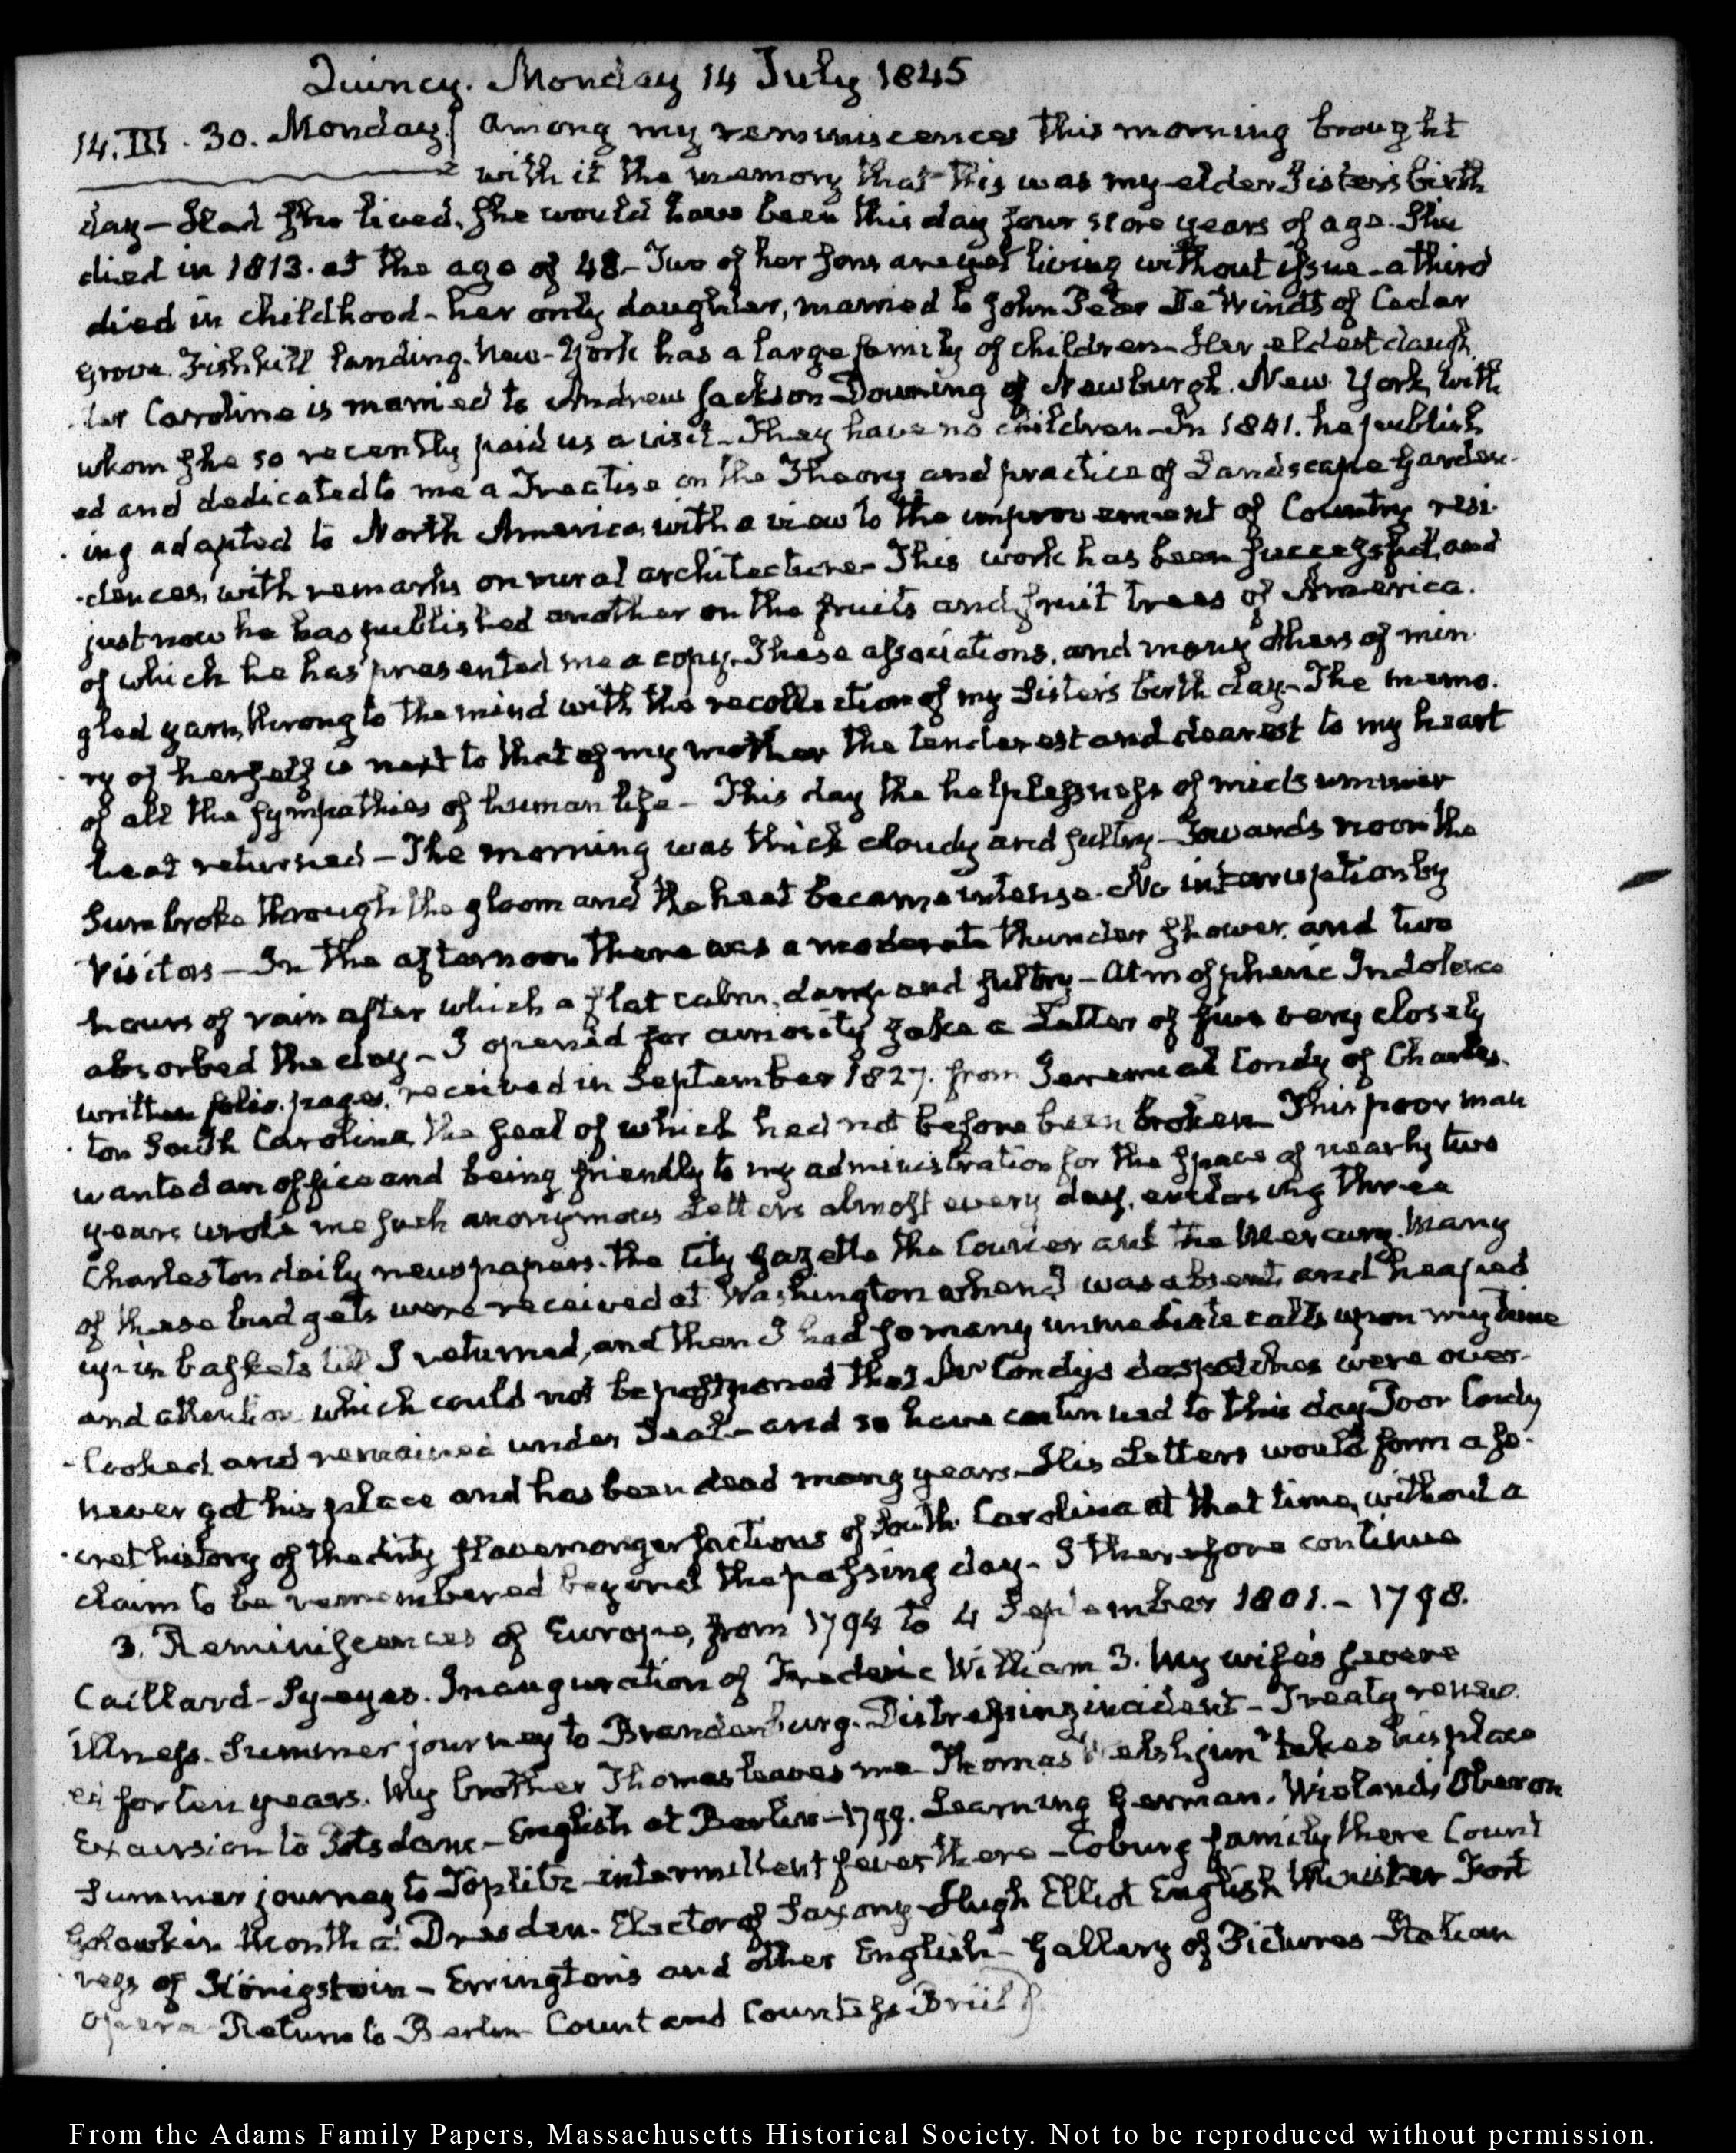 Quincy. Monday 14 July 1845
14. III. 30. Monday. Among my reminiscences this morning brought
with it the memory that this was my elder Sister's birth
day – Had she lived, she would have been this day four score years of age. She
died in 1813. at the age of 48 – Two of her Sons are yet living without issue – a third
died in childhood – her only daughter, married to John Peter De Windt of Cedar
grove Fishkill Landing. New-York has a large family of children – Her eldest daugh
ter Caroline is married to Andrew Jackson Downing of Newburgh. New York, with
whom she so recently paid us a visit – They have no children – In 1841. he publish
ed and dedicated to me a Treatise on the Theory and practice of Landscape Garden-
ing adapted to North America, with a view to the improvement of Country resi-
dences, with remarks on rural architecture – This work has been successful, and
just now he has published another on the fruits and fruit trees of America.
of which he has presented me a copy. These associations, and many others of min
gled yarn, throng to the mind with the recollection of my Sister's birth day – The memo-
ry of herself is next to that of my mother the tenderest and dearest to my heart
of all the sympathies of human life – This day the helplessness of midsummer
heat returned – The morning was thick cloudy and sultry – Towards noon the
Sun broke through the gloom and the heat became intense. No interruption by
Visitors – In the afternoon there was a moderate thunder shower, and two
hours of rain after which a flat calm, damp and sultry – Atmospheric Indolence
absorbed the day – I opened for curiosity sake a Letter of five very closely
written folio pages, received in September 1827. from Jeremiah Condy of Charles-
ton South Carolina, the seal of which had not before been broken – This poor man
wanted an office and being friendly to my administration for the space of nearly two
years wrote me such anonymous Letters almost every day, enclosing three
Charleston daily newspapers. the City Gazette the Courier and the Mercury. Many
of these budgets were received at Washington when I was absent, and heaped
up in baskets till I returned, and then I had so many immediate calls upon my time
and attention which could not be postponed that Mr Condy's despatches were over-
looked and remained under Seal – and so have continued to this day Poor Condy
never got his place and has been dead many years – His Letters would form a se-
cret history of the dirty slavemonger factions of South Carolina at that time, without a
claim to be remembered beyond the passing day – I therefore continue
3. Reminiscences of Europe, from 1794 to 4 September 1801. – 1798.
Caillard – Syeyes. Inauguration of Frederic William 3. My wife's severe
illness. Summer journey to Brandenburg. Distressing incident – Treaty renew
ed for ten years. My brother Thomas leaves me Thomas Welsh jun takes his place
Excursion to Potsdam – English at Berlin – 1799. Learning German. Wieland's Oberon
Summer journey to Töplitz – intermittent fever there – Coburg family there Count
Golowkin Month at Dresden. Elector of Saxony – Hugh Elliot English Minister Fort
ress of Königstein – Errington's and other English – Gallery of Pictures – Italian
opera Return to Berlin Count and Countess Brühl
From the Adams Family Papers, Massachusetts Historical Society. Not to be reproduced without permission.